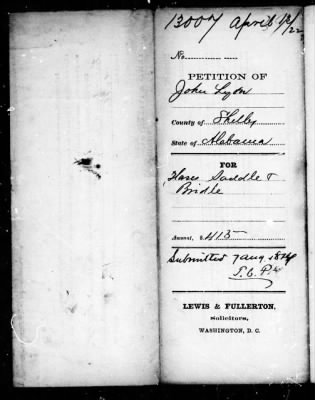 13007 April 13/22
No.
PETITION OF
John Lyon
County of Shelby
State of Alabama
FOR
Horse Saddle &
Bridle
Amount, $ 415
Submitted 7 Aug
LEWIS & FULLERTON,
Solicitors,
WASHINGTON, D. C.